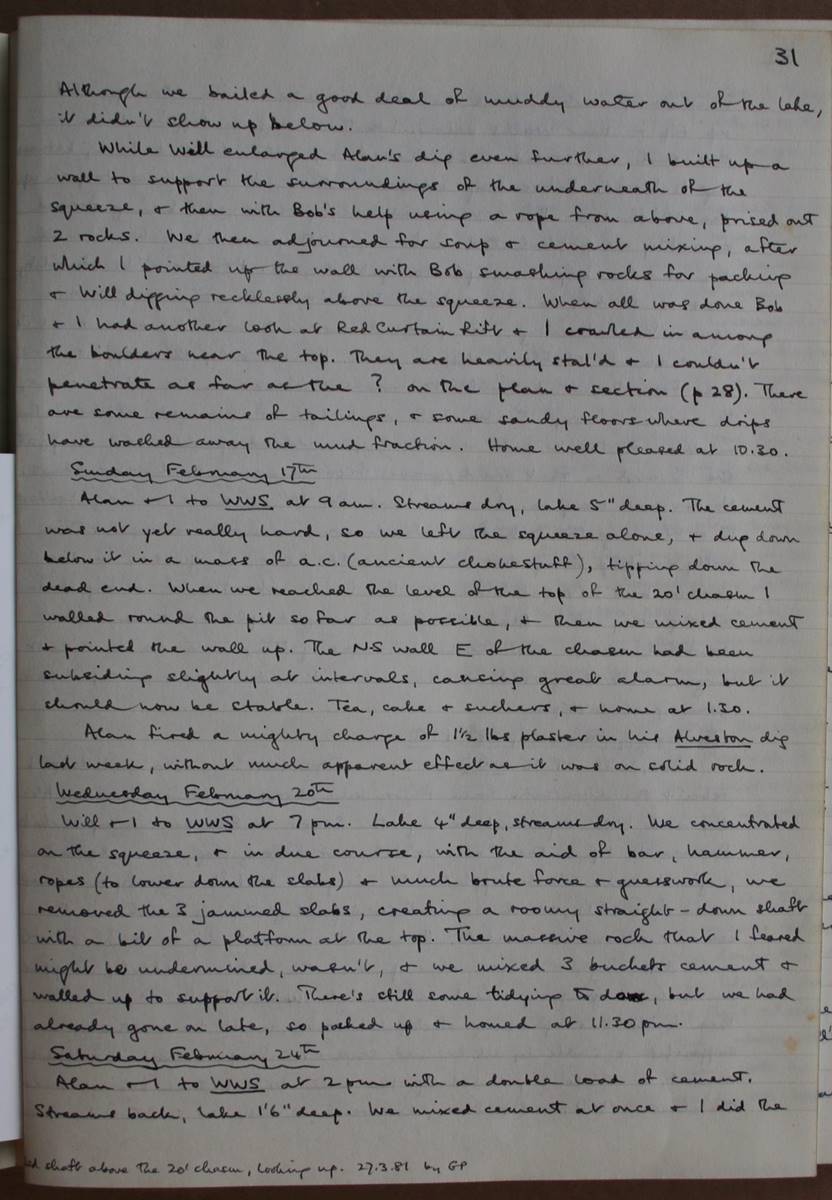 31
Although we bailed a good deal of muddy water out of the lake,
it didn't show up below.
While Will enlarged Alan's dig even further, I built up a
wall to support the surroundings of the underneath of the
squeeze, & then with Bob's help using a rope from above, prised out
2 rocks. We then adjourned for soup & cement mixing, after
which I pointed up the wall with Bob smashing rocks for packing
& Will digging recklessly above the squeeze. When all was done Bob
& I had another look at Red Curtain Rift & I crawled in among
the boulders near the top. They are heavily stal'd & I couldn't
penetrate as far as the ? on the plan & section (p 28). There
are some remains of tailings, & some sandy floors where drips
have washed away the mud fraction. Home well pleased at 10.30.
Sunday February 17th
Alan & I to WWS at 9 am. Streams dry, lake 5" deep. The cement
was not yet really hard, so we left the squeeze alone, & dug down
below it in a mass of a.c. (ancient chokestuff), tipping down the
dead end. When we reached the level of the top of the 20' chasm I
walled round the pit so far as possible, & then we mixed cement
& pointed the wall up. The NS wall E of the chasm had been
subsiding slightly at intervals, causing great alarm, but it
should now be stable. Tea, cake & suckers, & home at 1.30.
Alan fired a mighty charge of 1½ lbs plaster in his Alveston dig
last week, without much apparent effect as it was on solid rock.
Wednesday February 20th
Will & I to WWS at 7 pm. Lake 4" deep, streams dry. We concentrated
on the squeeze, & in due course, with the aid of bar, hammer,
ropes (to lower down the slabs) & much brute force & guesswork, we
removed the 3 jammed slabs, creating a roomy straight-down shaft
with a bit of a platform at the top. The massive rock that I feared
might be undermined, wasn't, & we mixed 3 buckets cement &
walled up to support it. There's still some tidying to do, but we had
already gone on late, so packed up & homed at 11.30 pm.
Saturday February 24th
Alan & I to WWS at 2 pm with a double load of cement.
Streams back, lake 1'6" deep. We mixed cement at once & I did the
shaft above the 20' chasm, looking up. 27.3.81 by GP